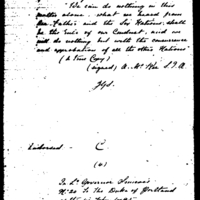 "We can do nothing in this
matter alone. what we heard from
our Father and the Six Nations, shall
be the rule of our Conduct, and we
will do nothing but with the concurrence
and approbation of all the other Nations"
(A True Copy)
(signed) A. McKee S. I. A.
Endorsed - C
In Lt Governor Simcoe's
to The Duke of Portland